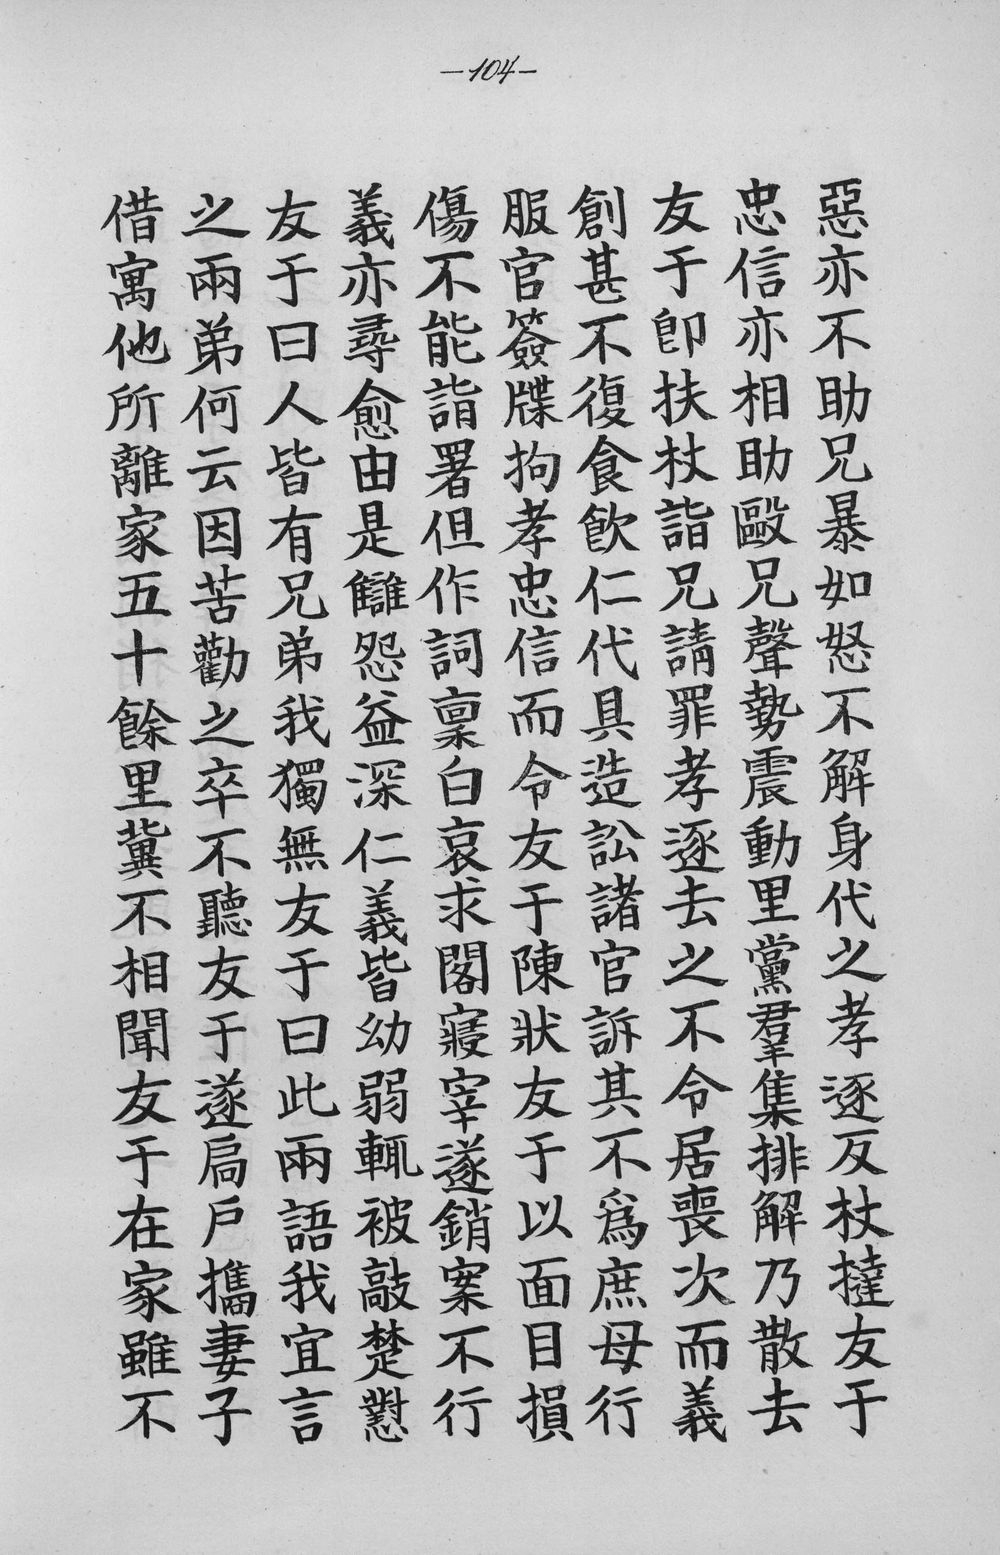 —104—
惡亦不助兄暴如怒不解身代之孝逐反杖撻友于
忠信亦相助毆兄聲勢震動里黨羣集排解乃散去
友于卽扶杖詣兄請罪孝逐去之不令居喪次而義
創甚不復食飲仁代具造訟諸官訴其不爲庶母行
服官簽牒拘孝忠信而令友于陳狀友于以面目損
傷不能詣署但作詞稟白哀求閣寢宰遂銷案不行
義亦尋愈由是讎怨益深仁義皆幼弱輒被敲楚懟
友于曰人皆有兄弟我獨無友于曰此兩語我宜言
之兩弟何云因苦勸之卒不聽友于遂扃戶攜妻子
借寓他所離家五十餘里冀不相聞友于在家雖不